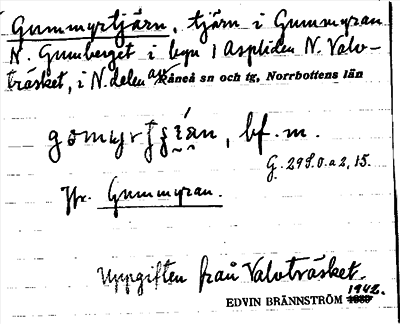 Gummyrtjärn, tjärn i Gummyran
N. Gumberget i byn 1 Aspliden N. Valv-
träsket, i N. delen av Råneå sn och tg, Norrbottens län
bf. m.
G. 298. 0. a 2, 15.
Jfr. Gummyran.
Uppgiften från Valvträsket.
1942.
EDVIN BRÄNNSTRÖM 1939